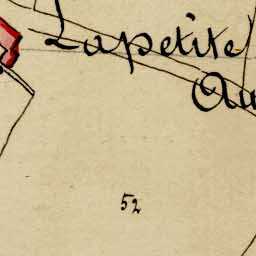 La petite
Au
52